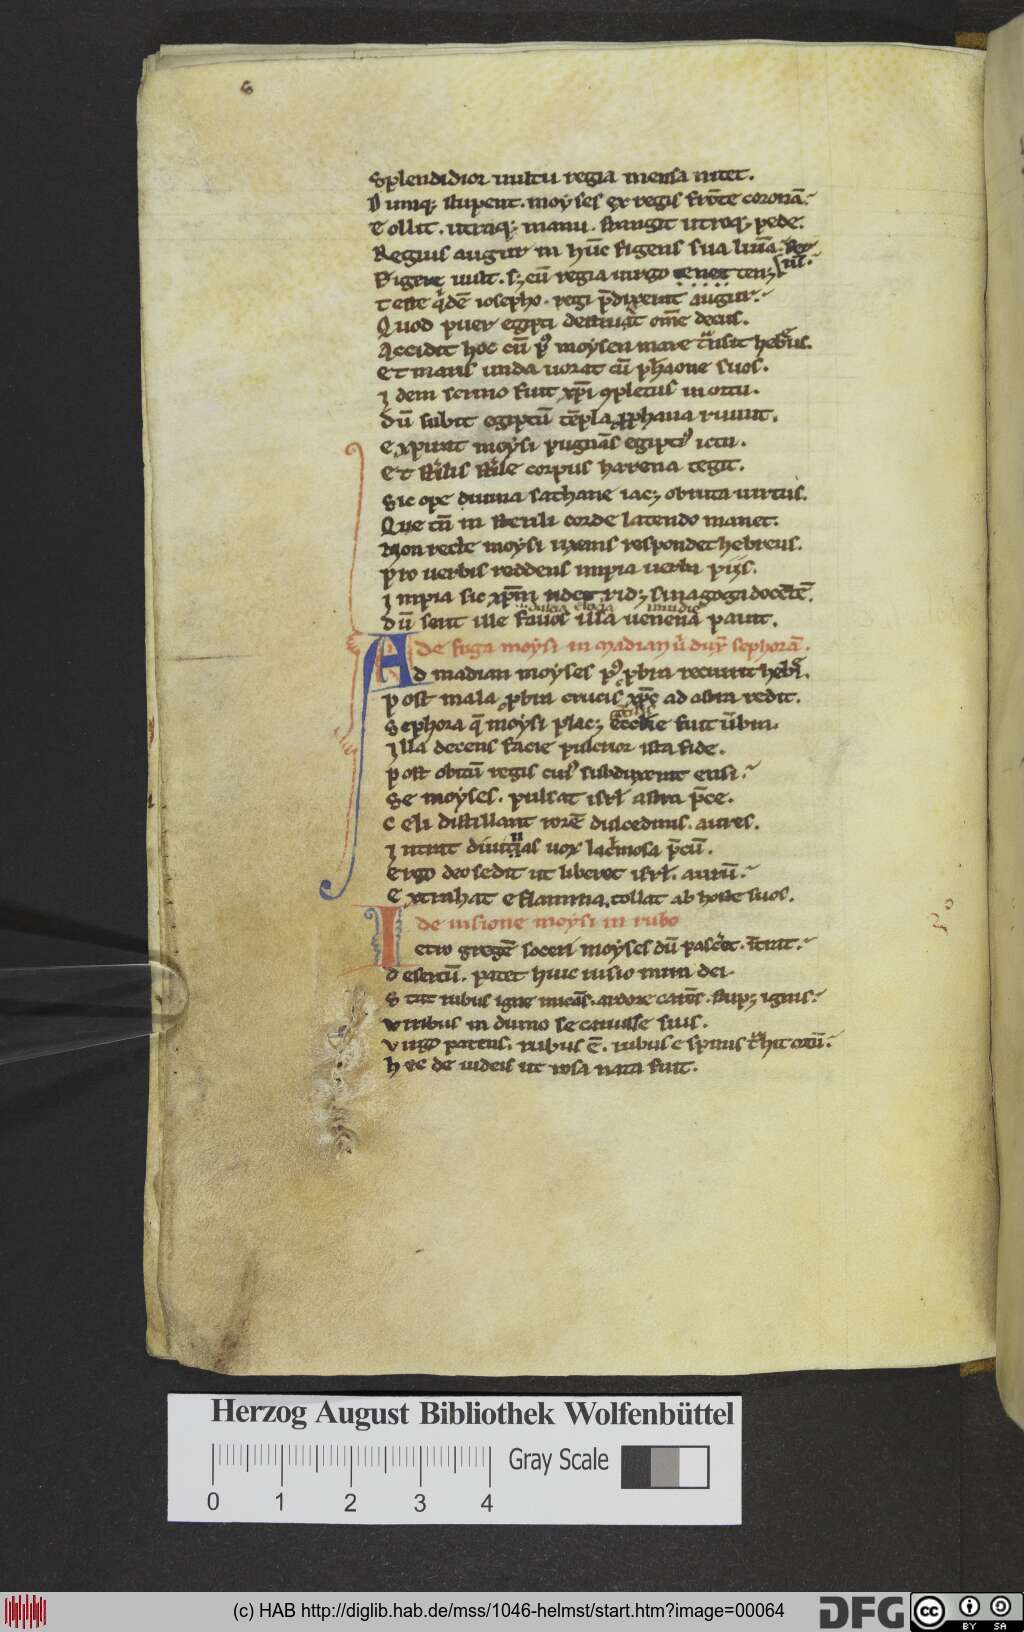 6
Splendidior uultu regia mensa nitet.
Dumq; stupent. moyses ex regis frōte coronā.
Tollit. utraq; manu. frangit utroq; pede.
Regius augur in hūc figens sua lumīa. fer
rū.
Figere uult. s; eū regia uirgo tenet
teste qͥdē iosepho. regi p̄dixerat augur.
Quod puer egipti destruat om̄e decus.
Accidit hoc cū pꝰ moysen mare trāsit hebreus.
Et maris unda uorat cū phaone suos.
Idem sermo fuit xp̄i 9pletus in ortu.
Dū subit egiptū tēpla ꝓphana ruunt.
Expirat moysi pugnās egiptiꝰ ictu.
Et st'ilis st'ile corpus harena tegit.
Sic ope diuina sathane iac; obruta uirtus.
Que tū in sterili corde latendo manet.
Non recte moysi uxans respondet hebreus.
Pro uerbis reddens impia uerba pijs.
Impia sic xp̄m rid; sinagoga docētē.
Dū serit ille fauos illa uenena parit.
De fuga moysi in madian ū dux̄ sephorā.
Ad madian moyses pꝰ ꝓbra recurrit hebr̄i.
Post mala ꝓbra crucis xp̄c ad astra redit.
Sephora q̄ moysi plac; ecclie fuit ūbra.
Illa decens facie pulcrior ista fide.
Post obitū regis cuiꝰ subduxerat ensi.
Se moyses. pulsat isrl' astra p̄ce.
Celi distillant rorē dulcedinis. aures.
Intrat diuinas uox lac'mosa p̄cū.
Ergo deo sedit ut liberet isrl'. aurū.
Extrahat e flamma. tollat ab hoste suos.
de uisione moysi in rubo
Ietro gregē soceri moyses dū pasc'et. īt'rat.
Desertū. patet huic uisio mira dei
Stat rubus igne micās. ardore carēs. stup; ignis.
Viribus in dumo se caruisse suis.
Virgo parens. rubus ē. rubus e spinis t'hit ortū.
Hec de iudeis ut rosa nata fuit.
Herzog August Bibliothek Wolfenbüttel
Gray Scale
0 1 2 3 4
(c) HAB http://diglib.hab.de/mss/1046-helmst/start.htm?image=00064
DFG
cc BY SA